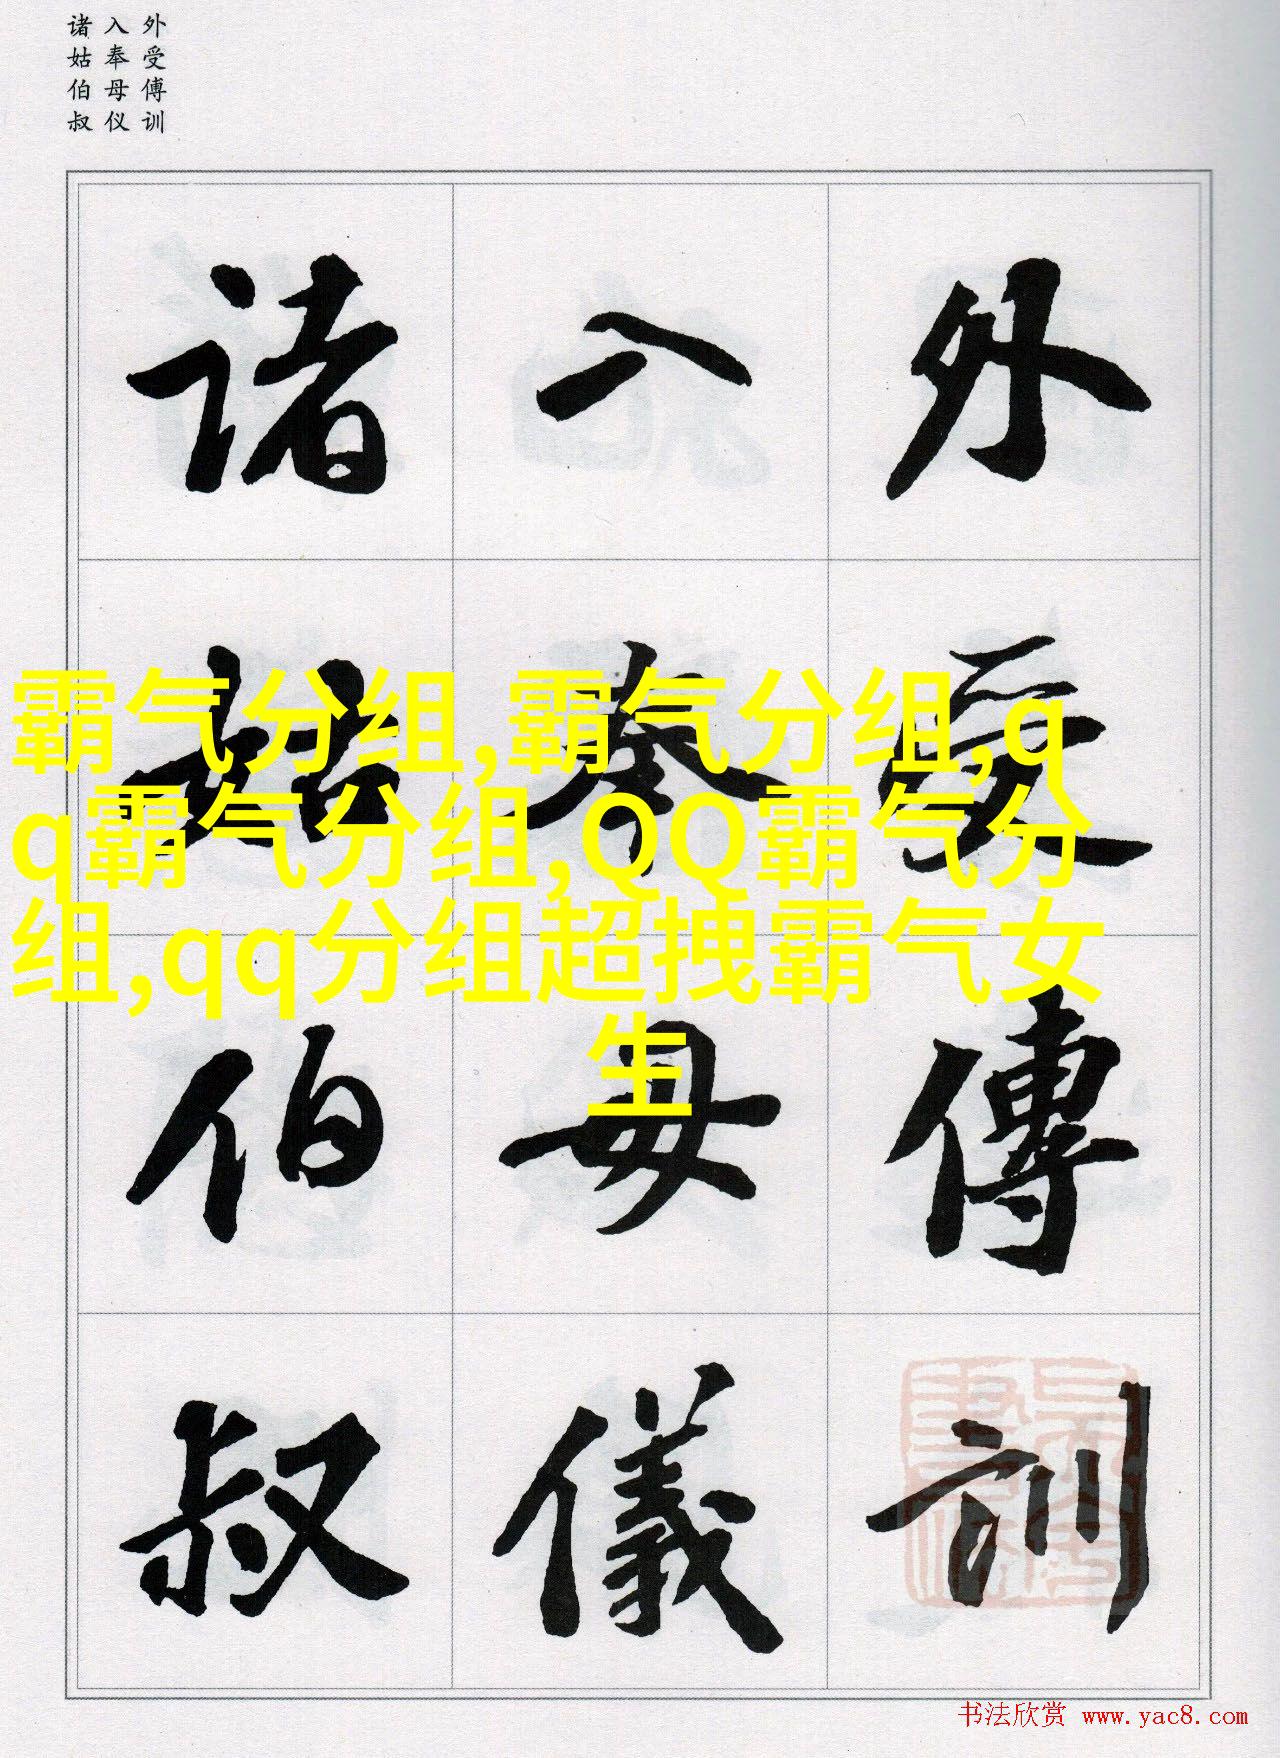 外受傅训
入奉母仪
诸姑伯叔
外受傅訓
入奉母儀
诸姑伯叔
霸气分组,霸气分组,q
q霸气分组,QQ霸气分
组,qq分组超拽霸气女
生
书法欣赏 www.yac8.com